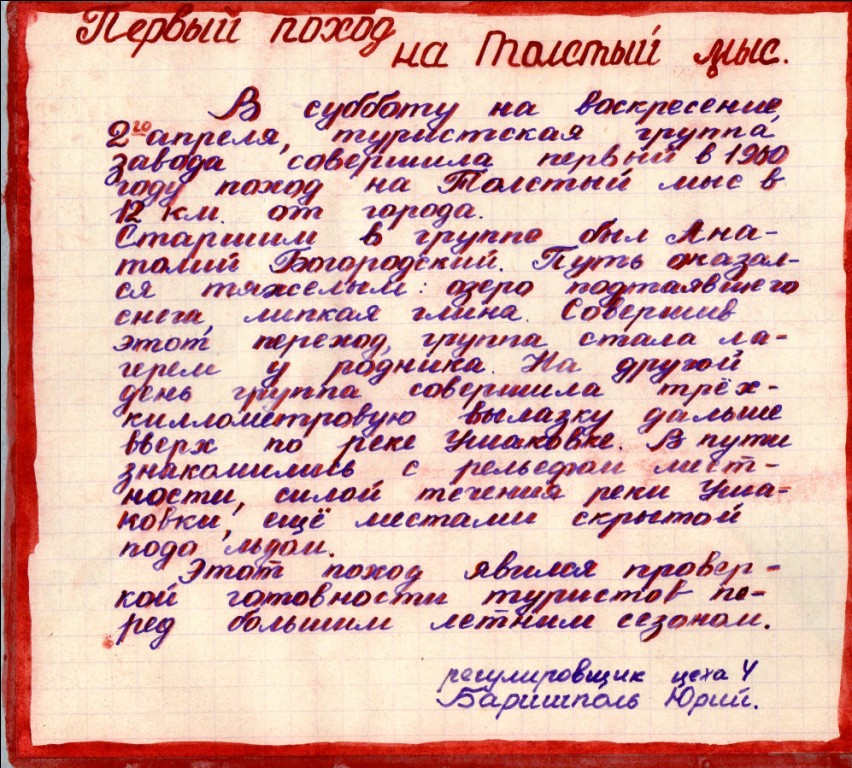 Первый поход
на Толстый мыс.
В субботу на воскресение,
2го апреля, туристская группа
завода совершила первый в 1960
году поход на Толстый мыс в
12 км. от города.
Старшим в группе был Ана-
толий Богородский. Путь оказал-
ся тяжелым: озеро подтаявшего
снега, липкая глина. Совершив
этот переход, группа стала ла-
герем у родника. На другой
день группа совершила трёх-
киллометровую вылазку дальше
вверх по реке Ушаковке. В пути
знакомились с рельефом мест-
ности, силой течения реки Уша-
ковки, ещё местами скрытой
подо льдом.
Этот поход явился провер-
кой готовности туристов пе-
ред большим летним сезоном.
регулировщик цеха 4
Баришполь Юрий.